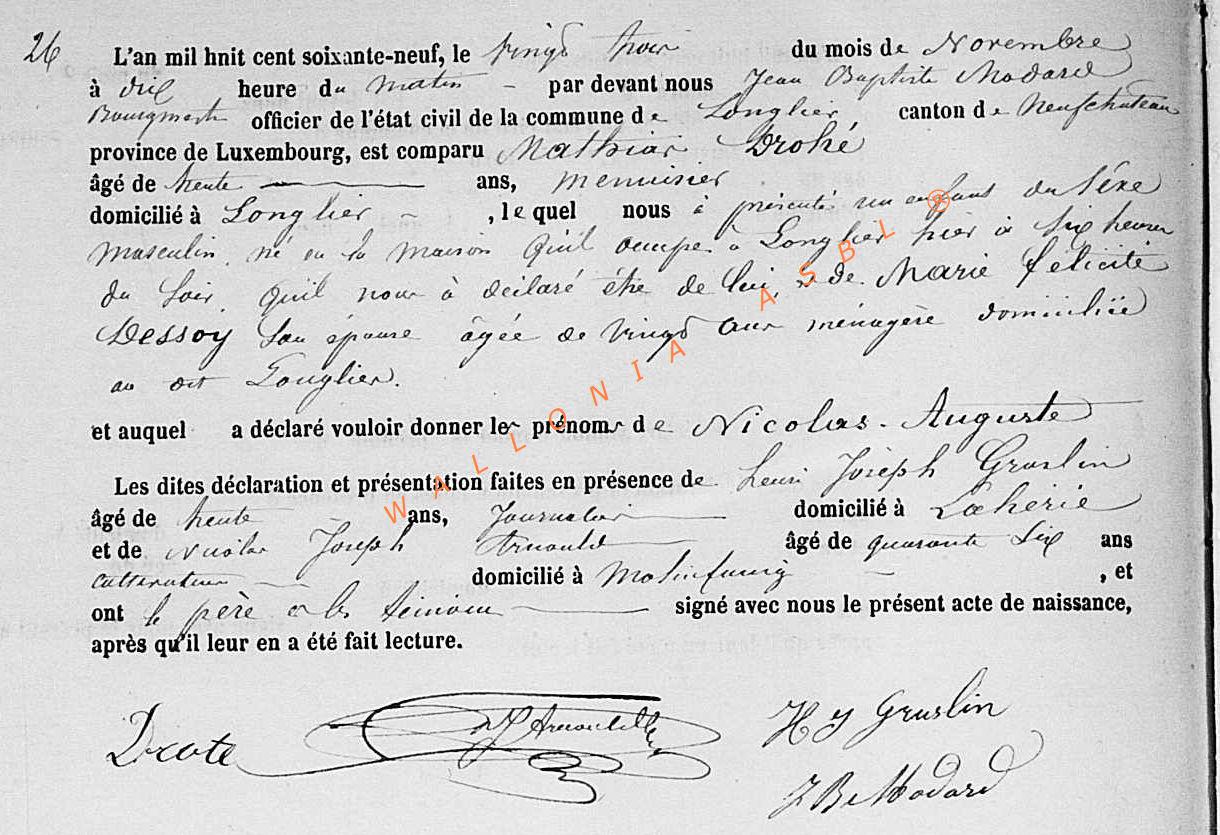 26
L'an mil huit cent soixante-neuf, le vingt trois du mois de Novembre
à dix heure du matin par devant nous Jean Baptiste Modard
Bourgmestre officier de l'état civil de la commune de Longlier, canton de Neufchateau
province de Luxembourg, est comparu Mathias Drohé
âgé de trente ans, menuisier
domicilié à Longlier, lequel nous à présenté un enfant du Séxe
masculin, né en la maison qu'il occupe à Longlier hier à Six heures
du Soir qu'il nous à déclaré être de lui, & de Marie félicité
Dessoy Son épouse âgée de vingt ans ménagère domiciliée
au dit Longlier.
et auquel a déclaré vouloir donner les prénoms de Nicolas-Auguste
Les dites déclaration et présentation faites en présence de Henri Joséph Gruslin
âgé de trente ans, Journalier domicilié à Laherie
et de Nicolas Joseph Arnould âgé de quarante Six ans
cultivateur domicilié à Molinfaing, et
ont le père et les témoins signé avec nous le présent acte de naissance,
après qu'il leur en a été fait lecture.
Drote NJ Arnould H J Gruslin
J B Modard
WALLONIA ASBL ®